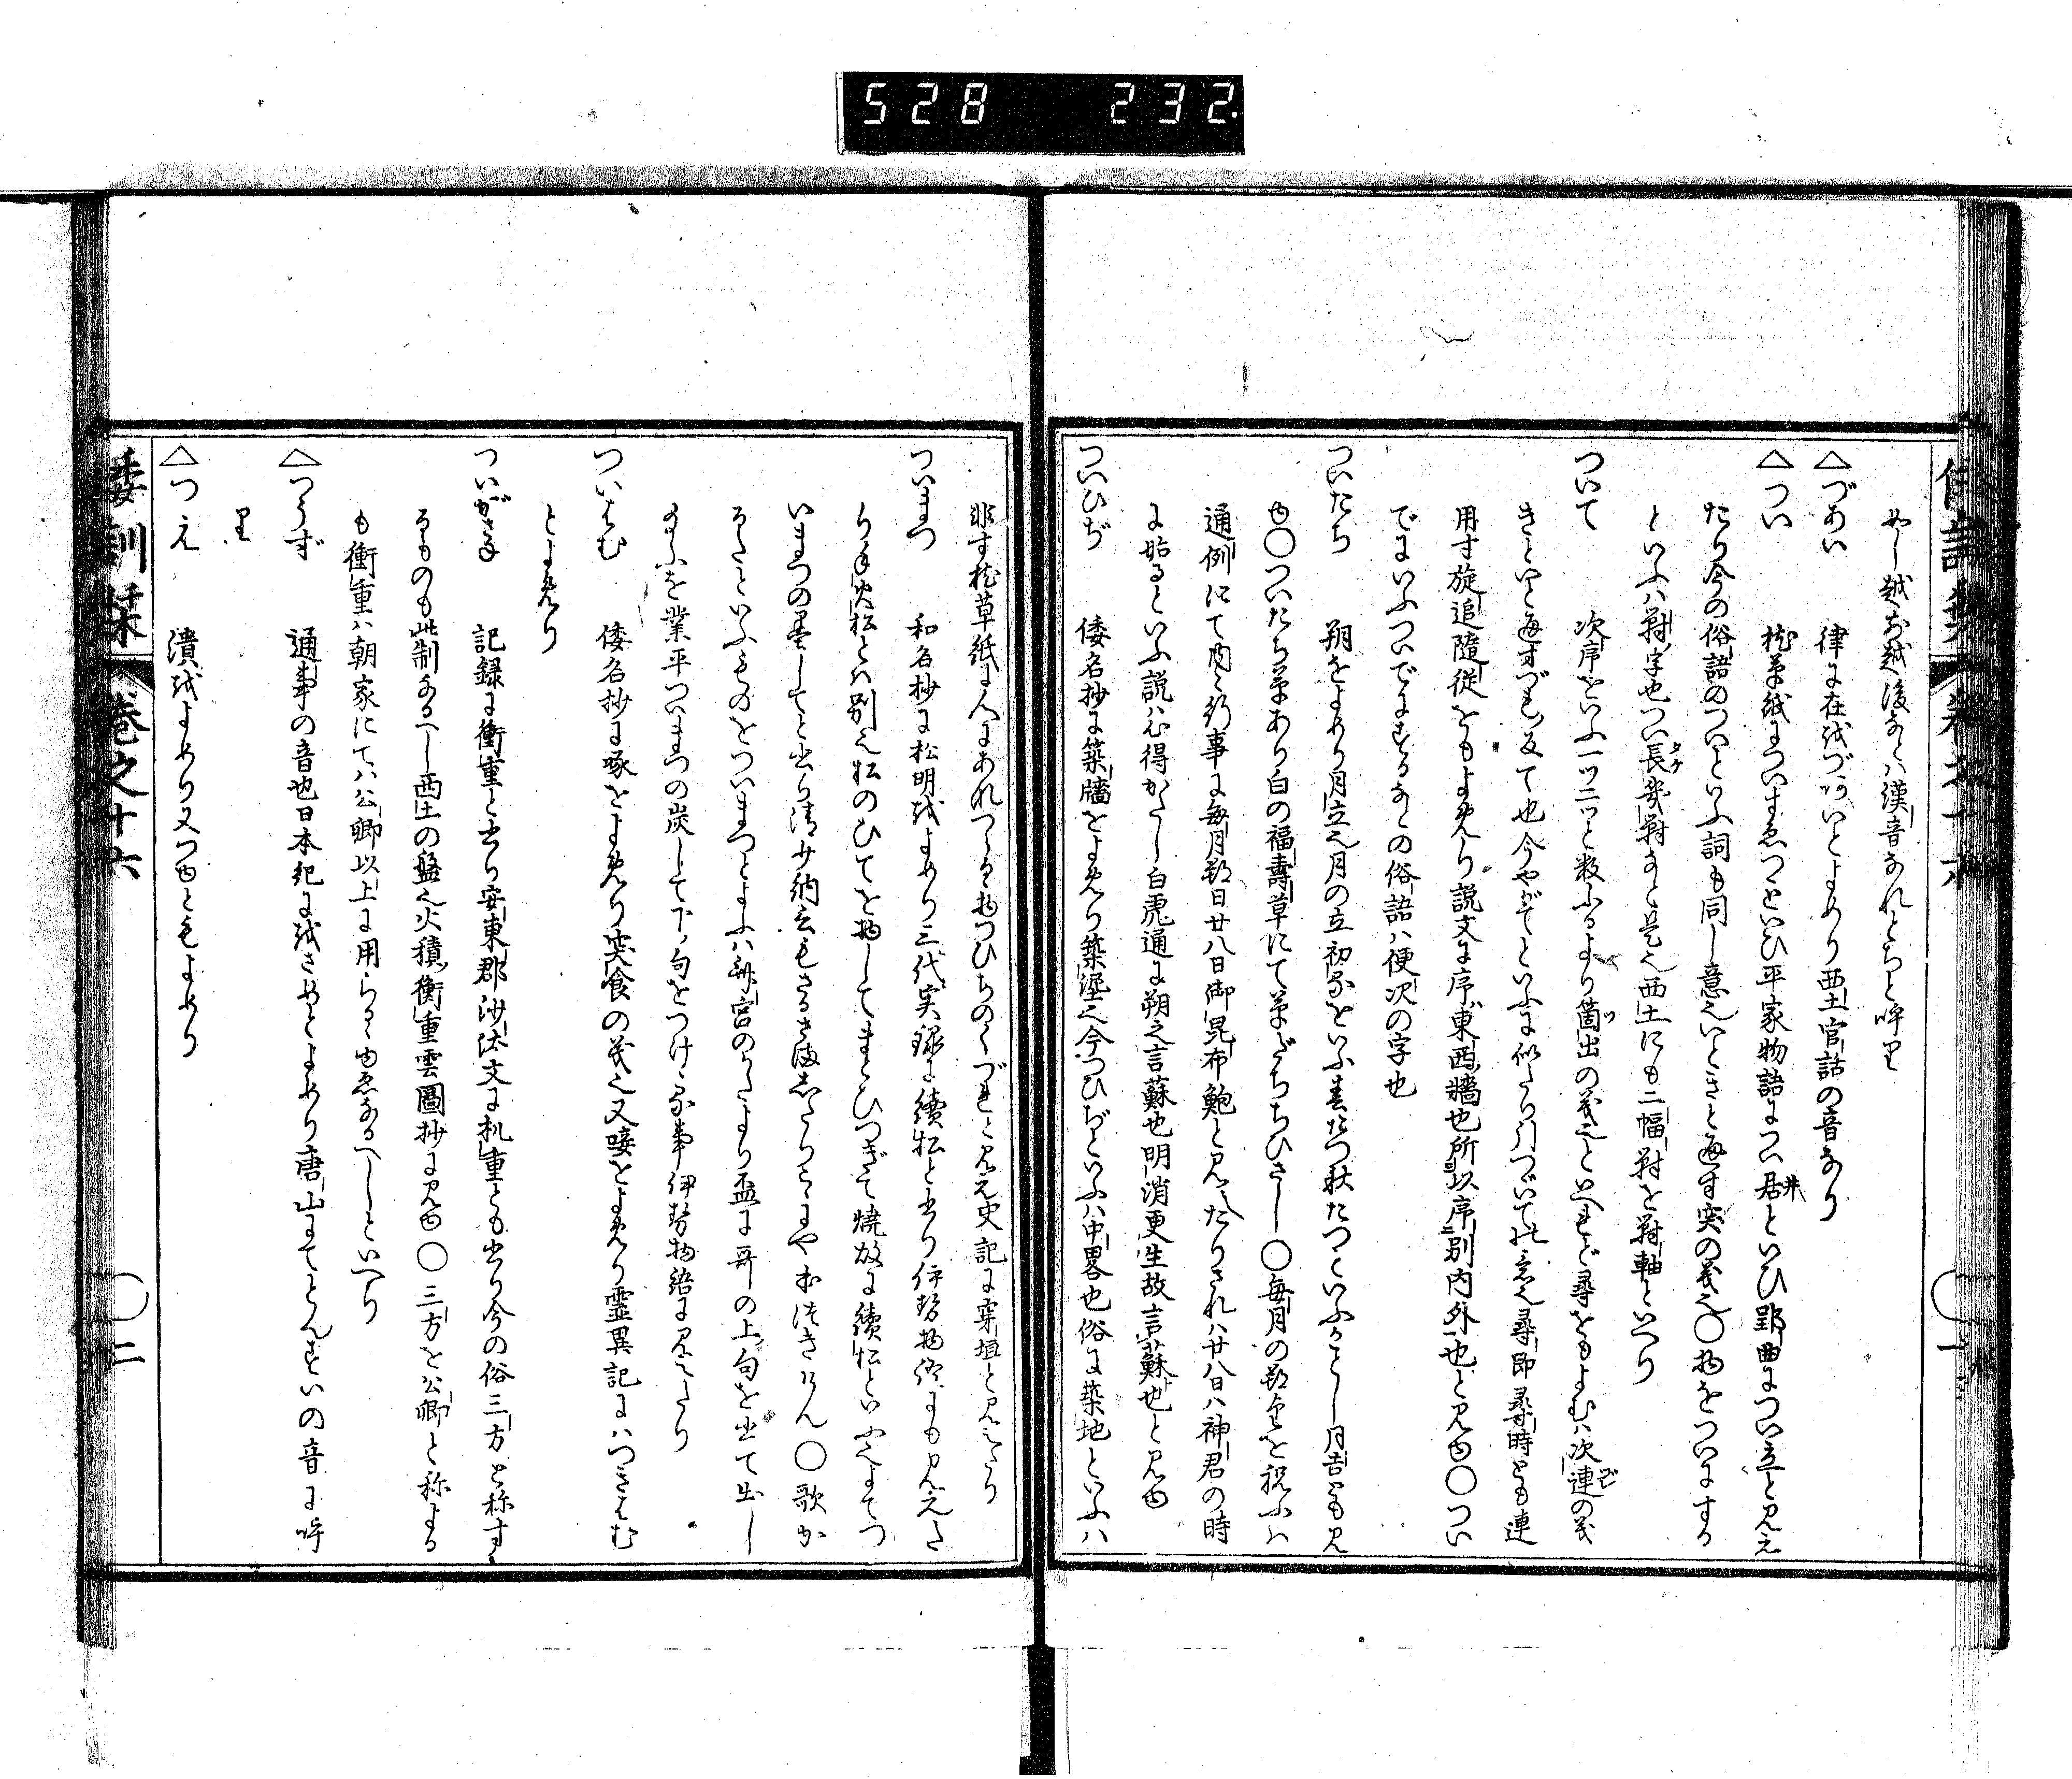 528 232.
やし越前越後なとハ漢音なれとちと呼り
△づあい 律に在をづあいとよめり西土官話の音なり
△つい 枕草紙についすゑつといひ平家物語につい居といひ郢曲につい立と見え
たり今の俗語のついといふ詞も同し意也いときと通す突の義也〇物をついにする
といふハ對字也つい長幾對なと是也西土にも二幅對を對軸といへり
ついて 次序をいふ一ツ二ツと数ふるより箇出の義也といへれど尋をもよむハ次連の義
きといと通ずづれ反て也今やがてといふに似たり引つゞいて の意也尋即尋時とも連
用す旋追隨従をもよめり説文に序東西牆也所以序別内外也と見ゆ〇つい
でにいふついでにするなとの俗語ハ便次の字也
ついたち 朔をよめり月立也月の立初るをいふ春たつ秋たつといふかことし月吉とも見
ゆ〇ついたち草あり白の福壽草にて草だちちひさし〇毎月の朔望を祝ふハ
通例にて内々行事に毎月朔日廿八日御昆布鮑と見へたりされハ廿八日ハ神君の時
に始るといふ説ハ心得かたし白虎通に朔之言蘇也明消更生故言蘇也と見ゆ
ついひぢ 倭名抄に築牆をよめり築埿也今つひぢといふハ中畧也俗に築地といふハ
非す枕草紙に人にあれつる物つひちのくづれと見え史記に壊垣と見えたり
ついまつ 和名抄に松明をよめり三代実録に續松と書り伊勢物語にも見えた
り手火松とハ別也松のひてを物してまとひつぎて燒故に續松といふ也よてつ
いまつの墨してと書り清少納言もさるさ海したりとにや ん〇歌か
るたといふものをついまつとよふハ齋宮のかたより盃に哥の上句を書て出し
たまふを業平ついまつの炭して下句をつけし事伊勢物語に見えたり
ついはむ 倭名抄に啄をよめり突食の義也又唼をよめり霊異記にハつきはむ
とよめり
ついがさね 記録に衝重と書り安東郡沙汰文に机重とも書り今の俗三方と称す
るものも此制なるへし西土の盤也火積衝重雲圖抄に見ゆ〇三方を公卿と称する
も衝重ハ朝家にてハ公卿以上に用らるゝゆゑなるへしといへり
△つうず 通事の音也日本紀にをさめとよめり唐山にてとんすいの音に呼
り
△つえ 潰をよめり又つゆともよめり
倭訓栞 巻之十六 〇一
倭訓栞 巻之十六 〇二